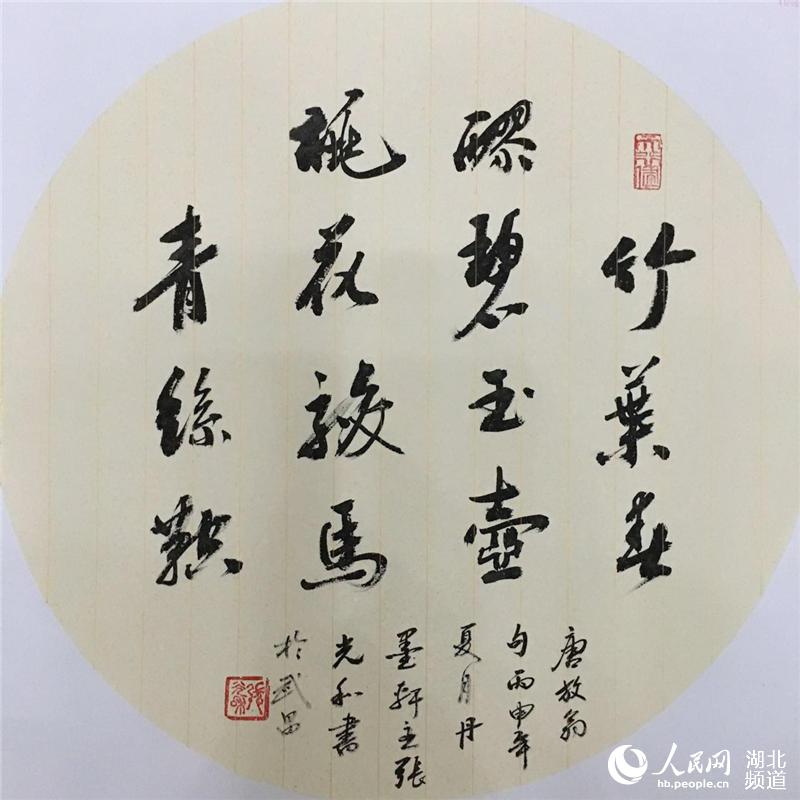 竹葉春
醪碧玉壺
桃花駿馬
青絲鞚
唐放翁
句丙申年
夏月丹
墨軒主張
光和書
於武昌
人民网 湖北频道
hb.people.cn